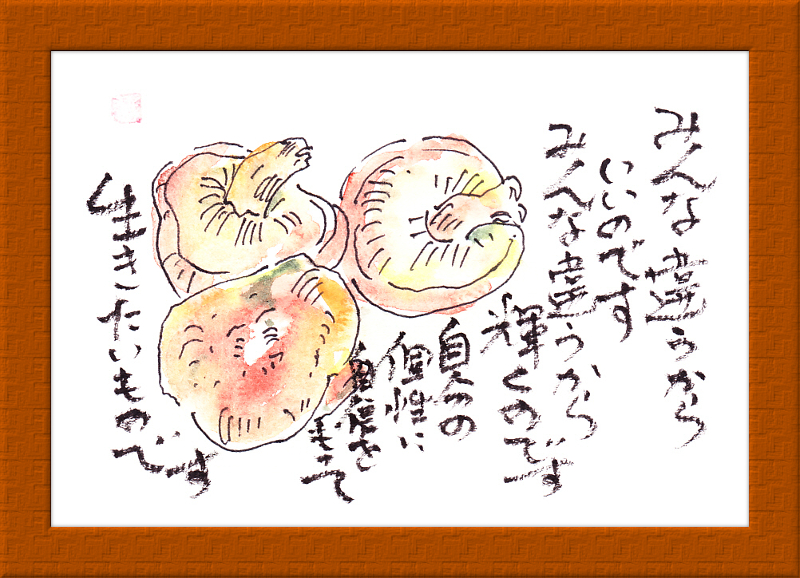 みんな違うから
いいのです
みんな違うから
輝くのです
自分の
個性に
自信を
もって
生きたいものです